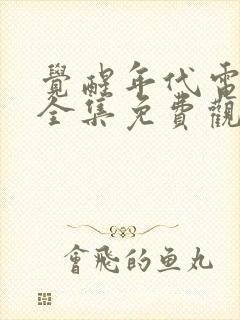 覺醒年代電
全集免費觀
會飛的魚丸